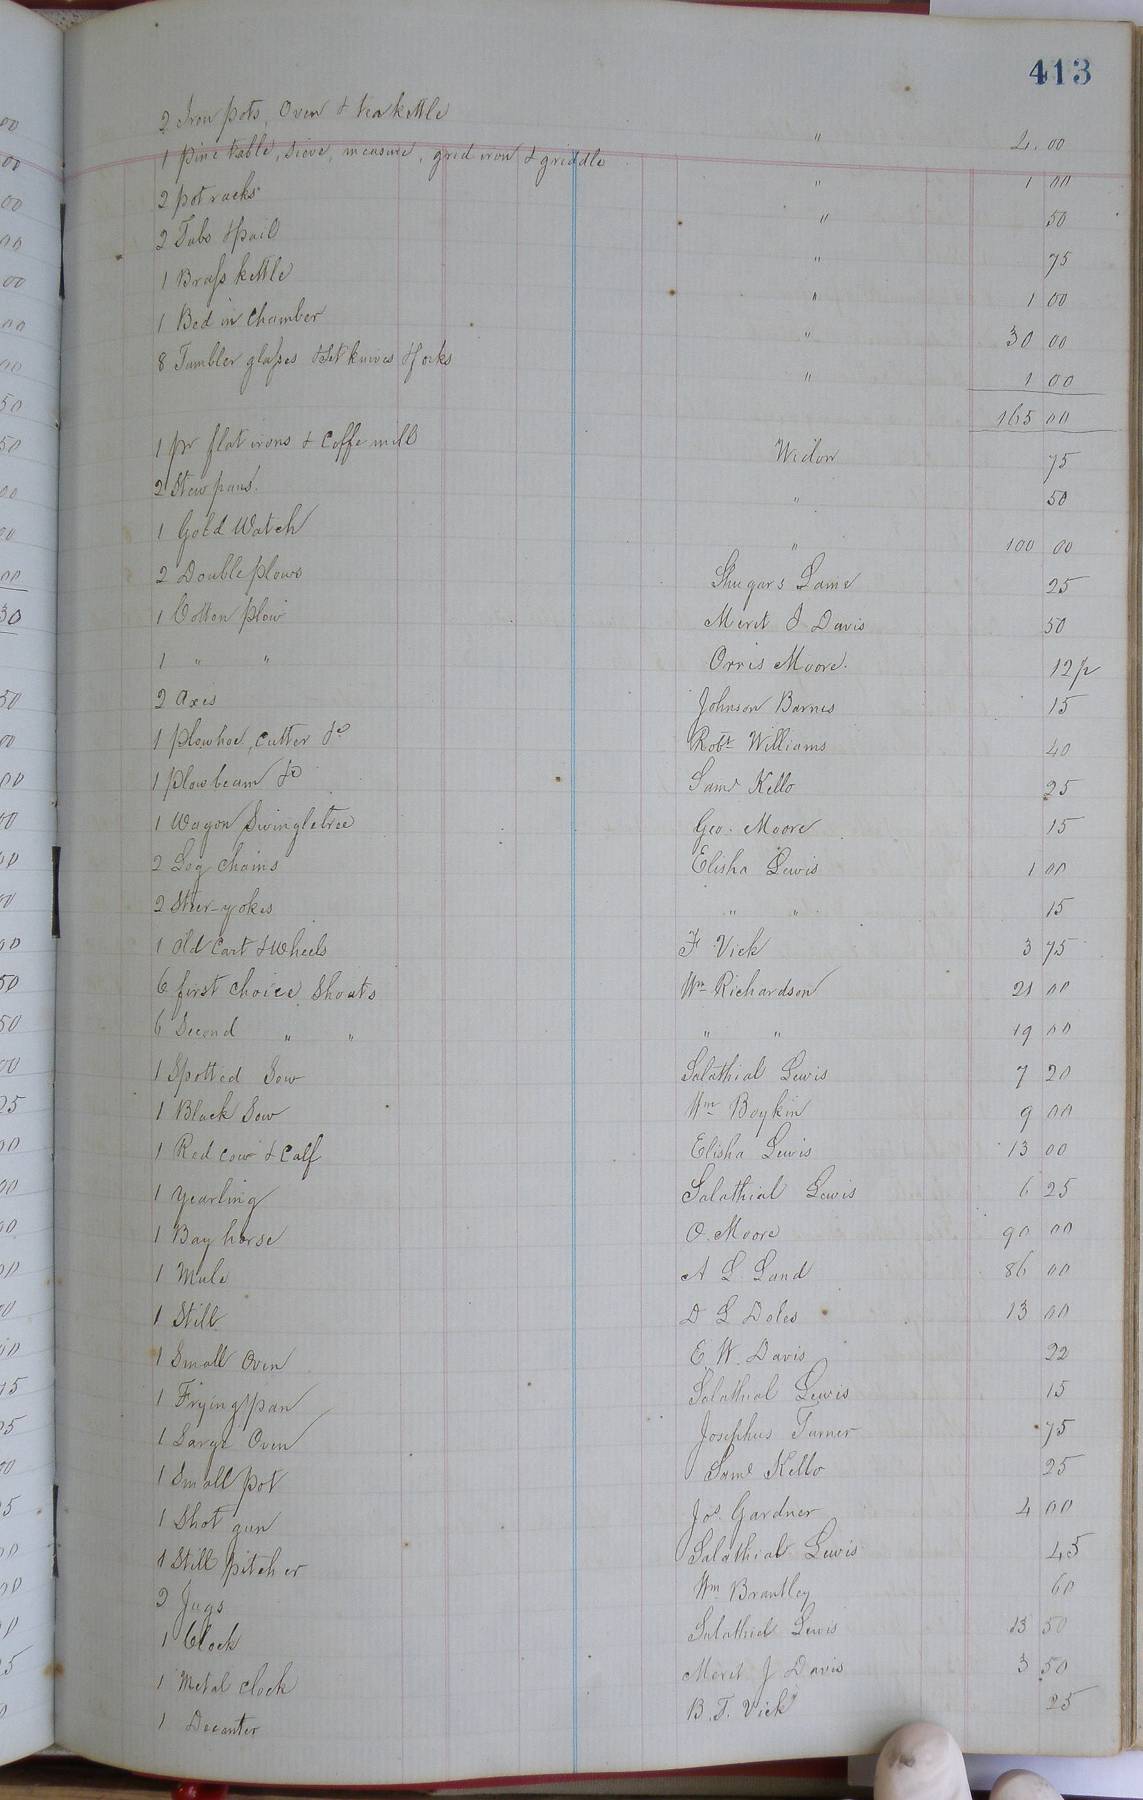 413
2 Iron pots, Oven & tea kettle " 4.00
1 pine table, sieve, measure, grid iron & griddle " 1 00
2 pot racks " 50
2 Tubs & pail " 75
1 Brass kettle " 1 00
1 Bed in Chamber " 30 00
8 Tumbler glasses & Set knives & forks " 1 00
165 00
1 pr flat irons & Coffe mill Widow 75
2 Stew pans. " 50
1 Gold Watch " 100 00
2 Double plows Shugars Laine 25
1 Cotton plow Merit J Davis 50
1 " " Orris Moore. 12½
2 axis Johnson Barnes 15
1 plowhoe, Cutter &c Robt Williams 40
1 plow beam &c Saml Kello 25
1 Wagon Swingletree Geo. Moore 15
2 Log Chains Elisha Lewis 1 00
2 Steer-yokes " " 15
1 old Cart & Wheels F Vick 3 75
6 first choice Shouts Wm Richardson 21 00
6 Second " " " " 19 00
1 Spotted Sow Salathial Lewis 7 20
1 Black Sow Wm Boykin 9 00
1 Red cow & Calf Elisha Lewis 13 00
1 yearling Salathial Lewis 6 25
1 Bay horse O. Moore 90 00
1 Mule A L Land 86 00
1 Still D L Doles 13 00
1 Small Oven E W. Davis 22
1 Frying pan Salathial Lewis 15
1 Large Oven Josephus Turner 75
1 Small pot Saml Kello 25
1 Shot gun Jos. Gardner 4 00
1 Still pitcher Salathial Lewis 45
2 Jugs Wm Brantley 60
1 Clock Salathial Lewis 13 50
1 Metal clock Merit J Davis 3 50
1 Decanter B. T. Vick 25